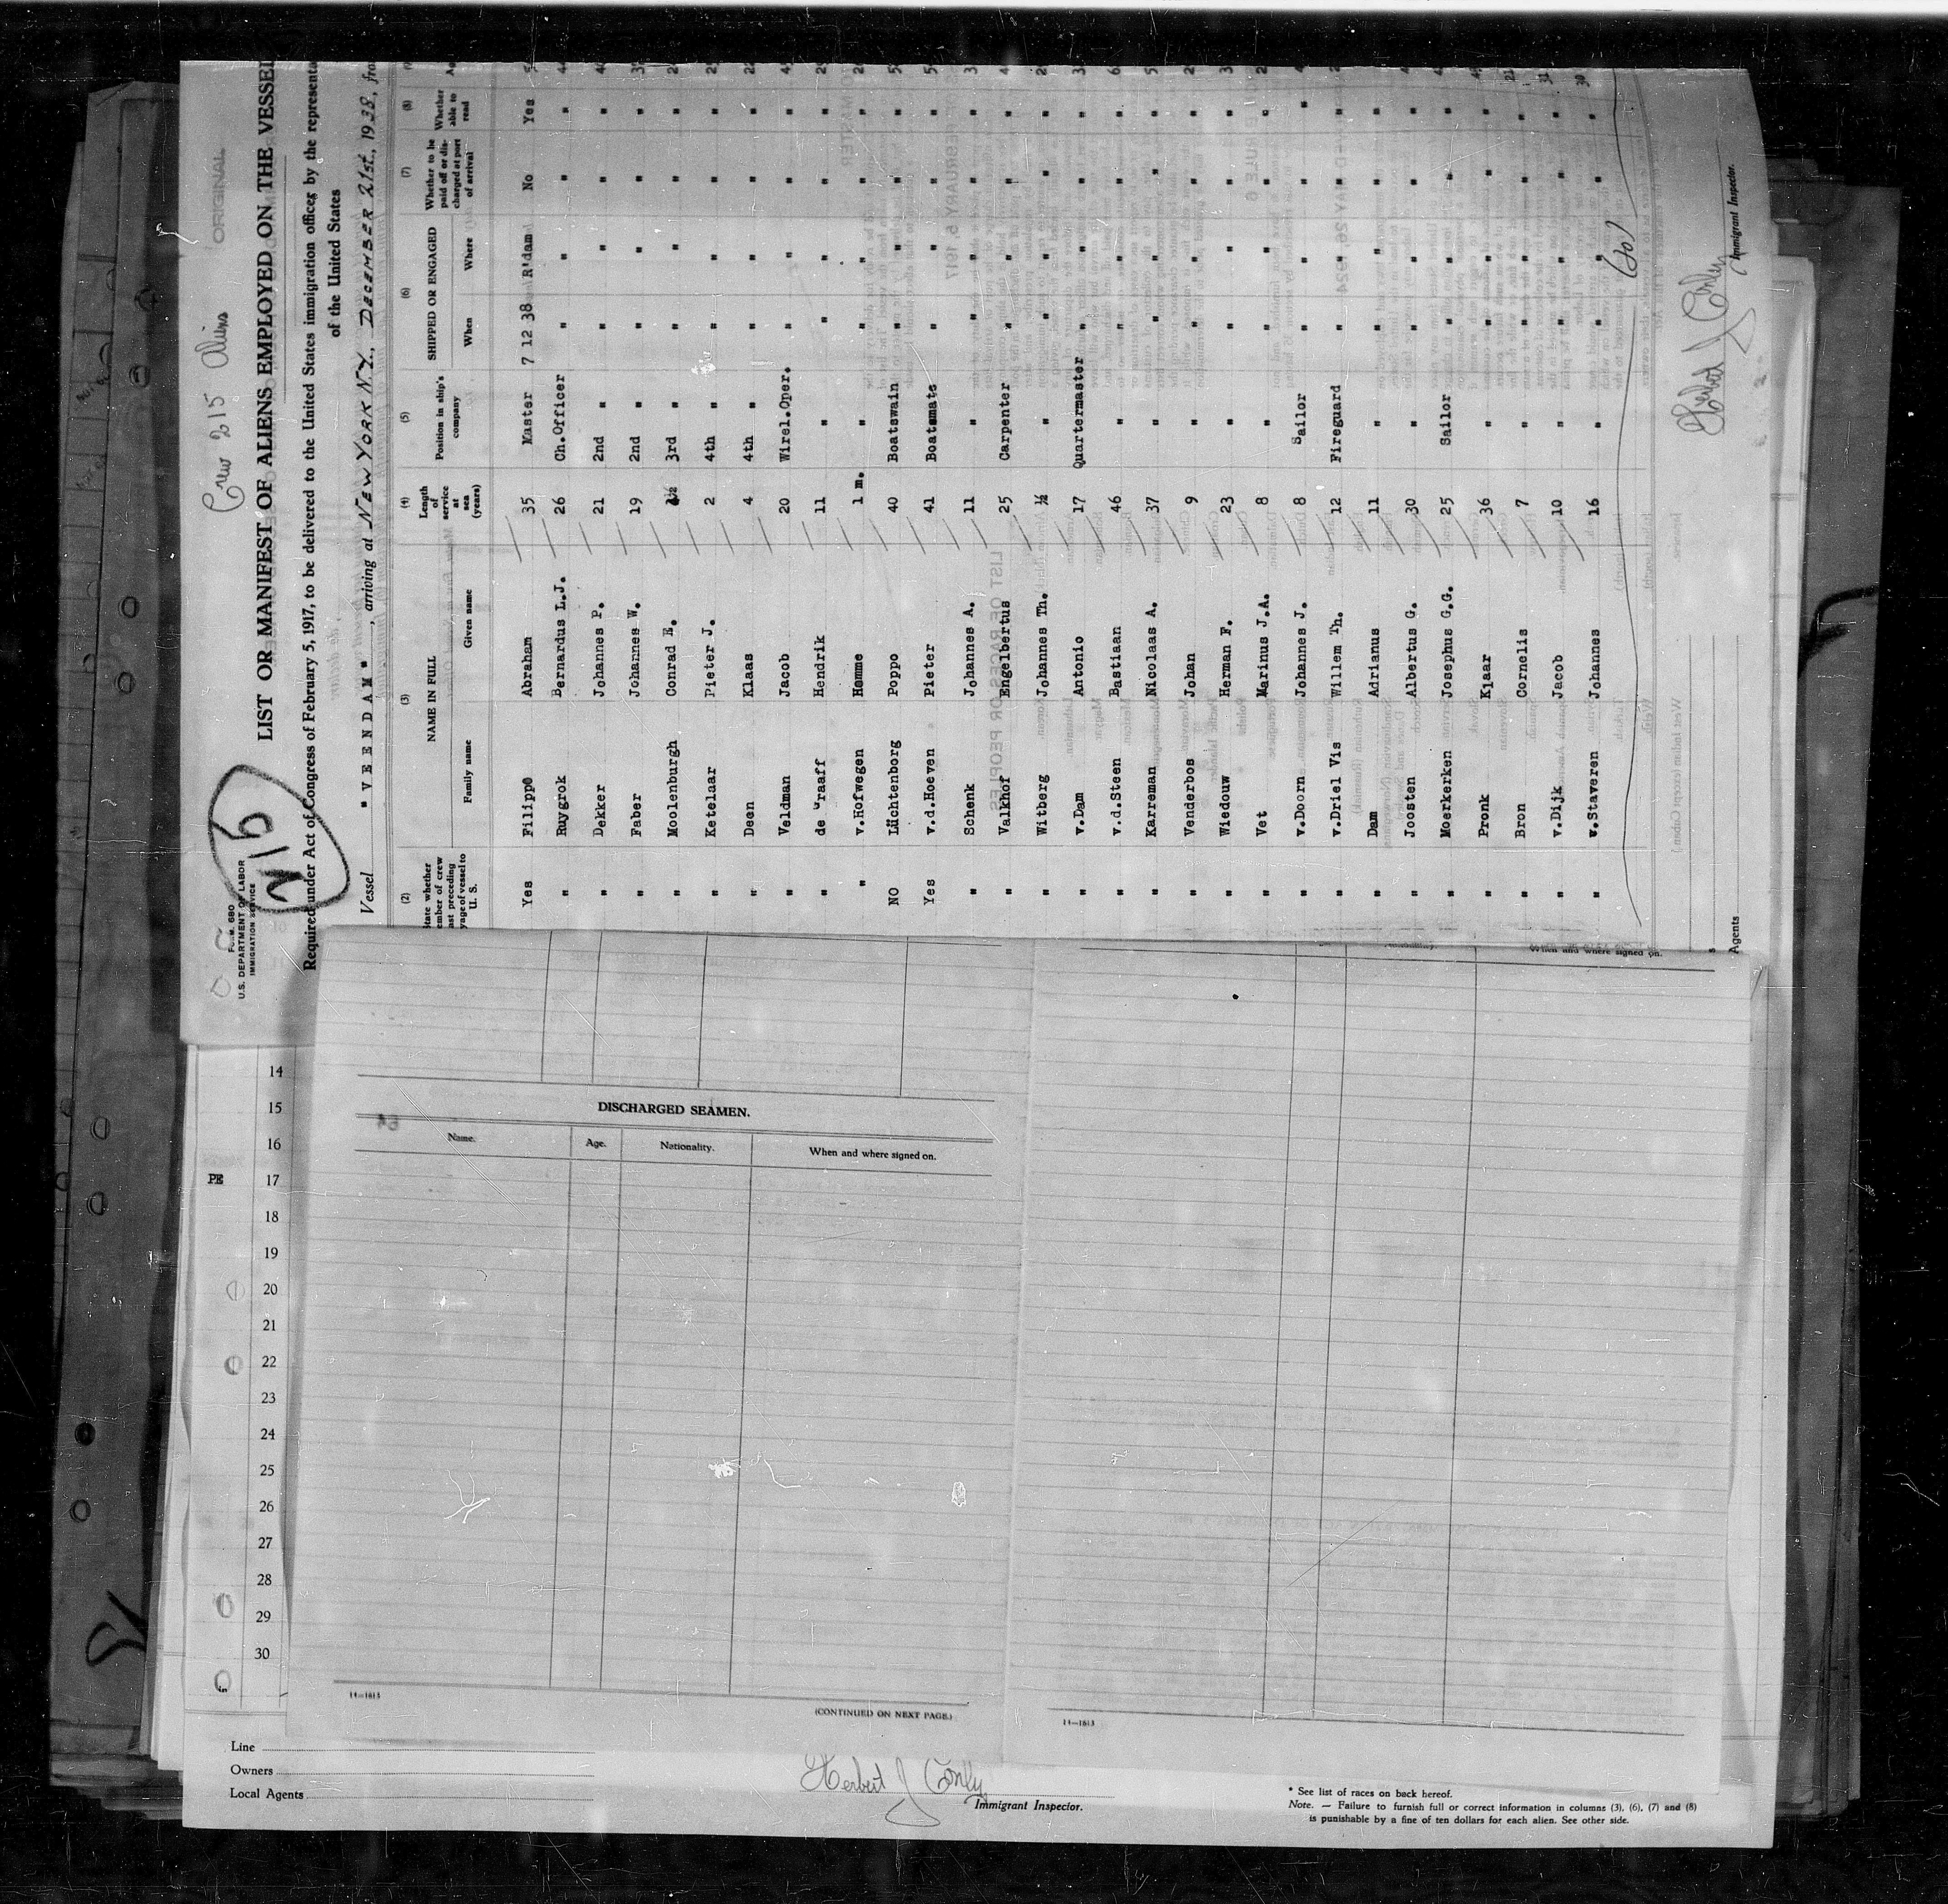 Crew 215 Aliens
ORIGINAL
N/6
FORM 680
U.S. DEPARTMENT OF LABOR
IMMIGRATION SERVICE
LIST OR MANIFEST OF ALIENS EMPLOYED ON THE VESSEL
Required under Act of Congress of February 5, 1917, to be delivered to the United States immigration officer by the representa
of the United States
Vessel "VEENDAM", arriving at NEW YORK N.Y., DECEMBER 21st, 1938, fro
(2) (3) (4) (5) (6) (7) (8)
State whether member of crew last preceding voyage of vessel to U. S.
NAME IN FULL
Family name Given name
Length of service at sea (years)
Position in ship's company
SHIPPED OR ENGAGED
When Where
Whether to be paid off or discharged at port of arrival
Whether able to read
Yes Filippo Abraham 35 Master 7 12 38 R'dam No Yes
" Ruygrok Bernardus L.J. 26 Ch.Officer " " " "
" Dekker Johannes P. 21 2nd " " " " "
" Faber Johannes W. 19 2nd " " " " "
" Moolenburgh Conrad E. 3rd " " " " "
" Ketelaar Pieter J. 2 4th " " " " "
" Deen Klaas 4 4th " " " " "
" Veldman Jacob 20 Wirel.Oper. " " " "
" de Graaff Hendrik 11 " " " " "
" v.Hofwegen Hemme 1 m. " " " " "
NO Lüchtenborg Poppo 40 Boatswain " " " "
Yes v.d.Hoeven Pieter 41 Boatsmate " " " "
" Schenk Johannes A. 11 " " " " "
" Valkhof Engelbertus 25 Carpenter " " " "
" Witberg Johannes Th. ½ " " " " "
" v.Dam Antonio 17 Quartermaster " " " "
" v.d.Steen Bastiaan 46 " " " " "
" Karreman Nicolaas A. 37 " " " " "
" Venderbos Johan 9 " " " " "
" Wiedouw Herman F. 23 " " " " "
" Vet Marinus J.A. 8 " " " " "
" v.Doorn Johannes J. 8 Sailor " " " "
" v.Driel Vis Willem Th. 12 Fireguard " " " "
" Dam Adrianus 11 " " " " "
" Joosten Albertus G. 30 " " " " "
" Moerkerken Josephus G.G. 25 Sailor " " " "
" Pronk Klaar 36 " " " " "
" Bron Cornelis 7 " " " " "
" v.Dijk Jacob 10 " " " " "
" v.Staveren Johannes 16 " " " " "
Herbert J Conly
Immigrant Inspector.
Agents
When and where signed on.
14
15
16
PE 17
18
19
20
21
22
23
24
25
26
27
28
29
30
DISCHARGED SEAMEN.
Name. Age. Nationality. When and where signed on.
14—1613
(CONTINUED ON NEXT PAGE.)
14—1613
Line
Owners
Local Agents
Herbert J Conly
Immigrant Inspector.
* See list of races on back hereof.
Note. — Failure to furnish full or correct information in columns (3), (6), (7) and (8)
is punishable by a fine of ten dollars for each alien. See other side.